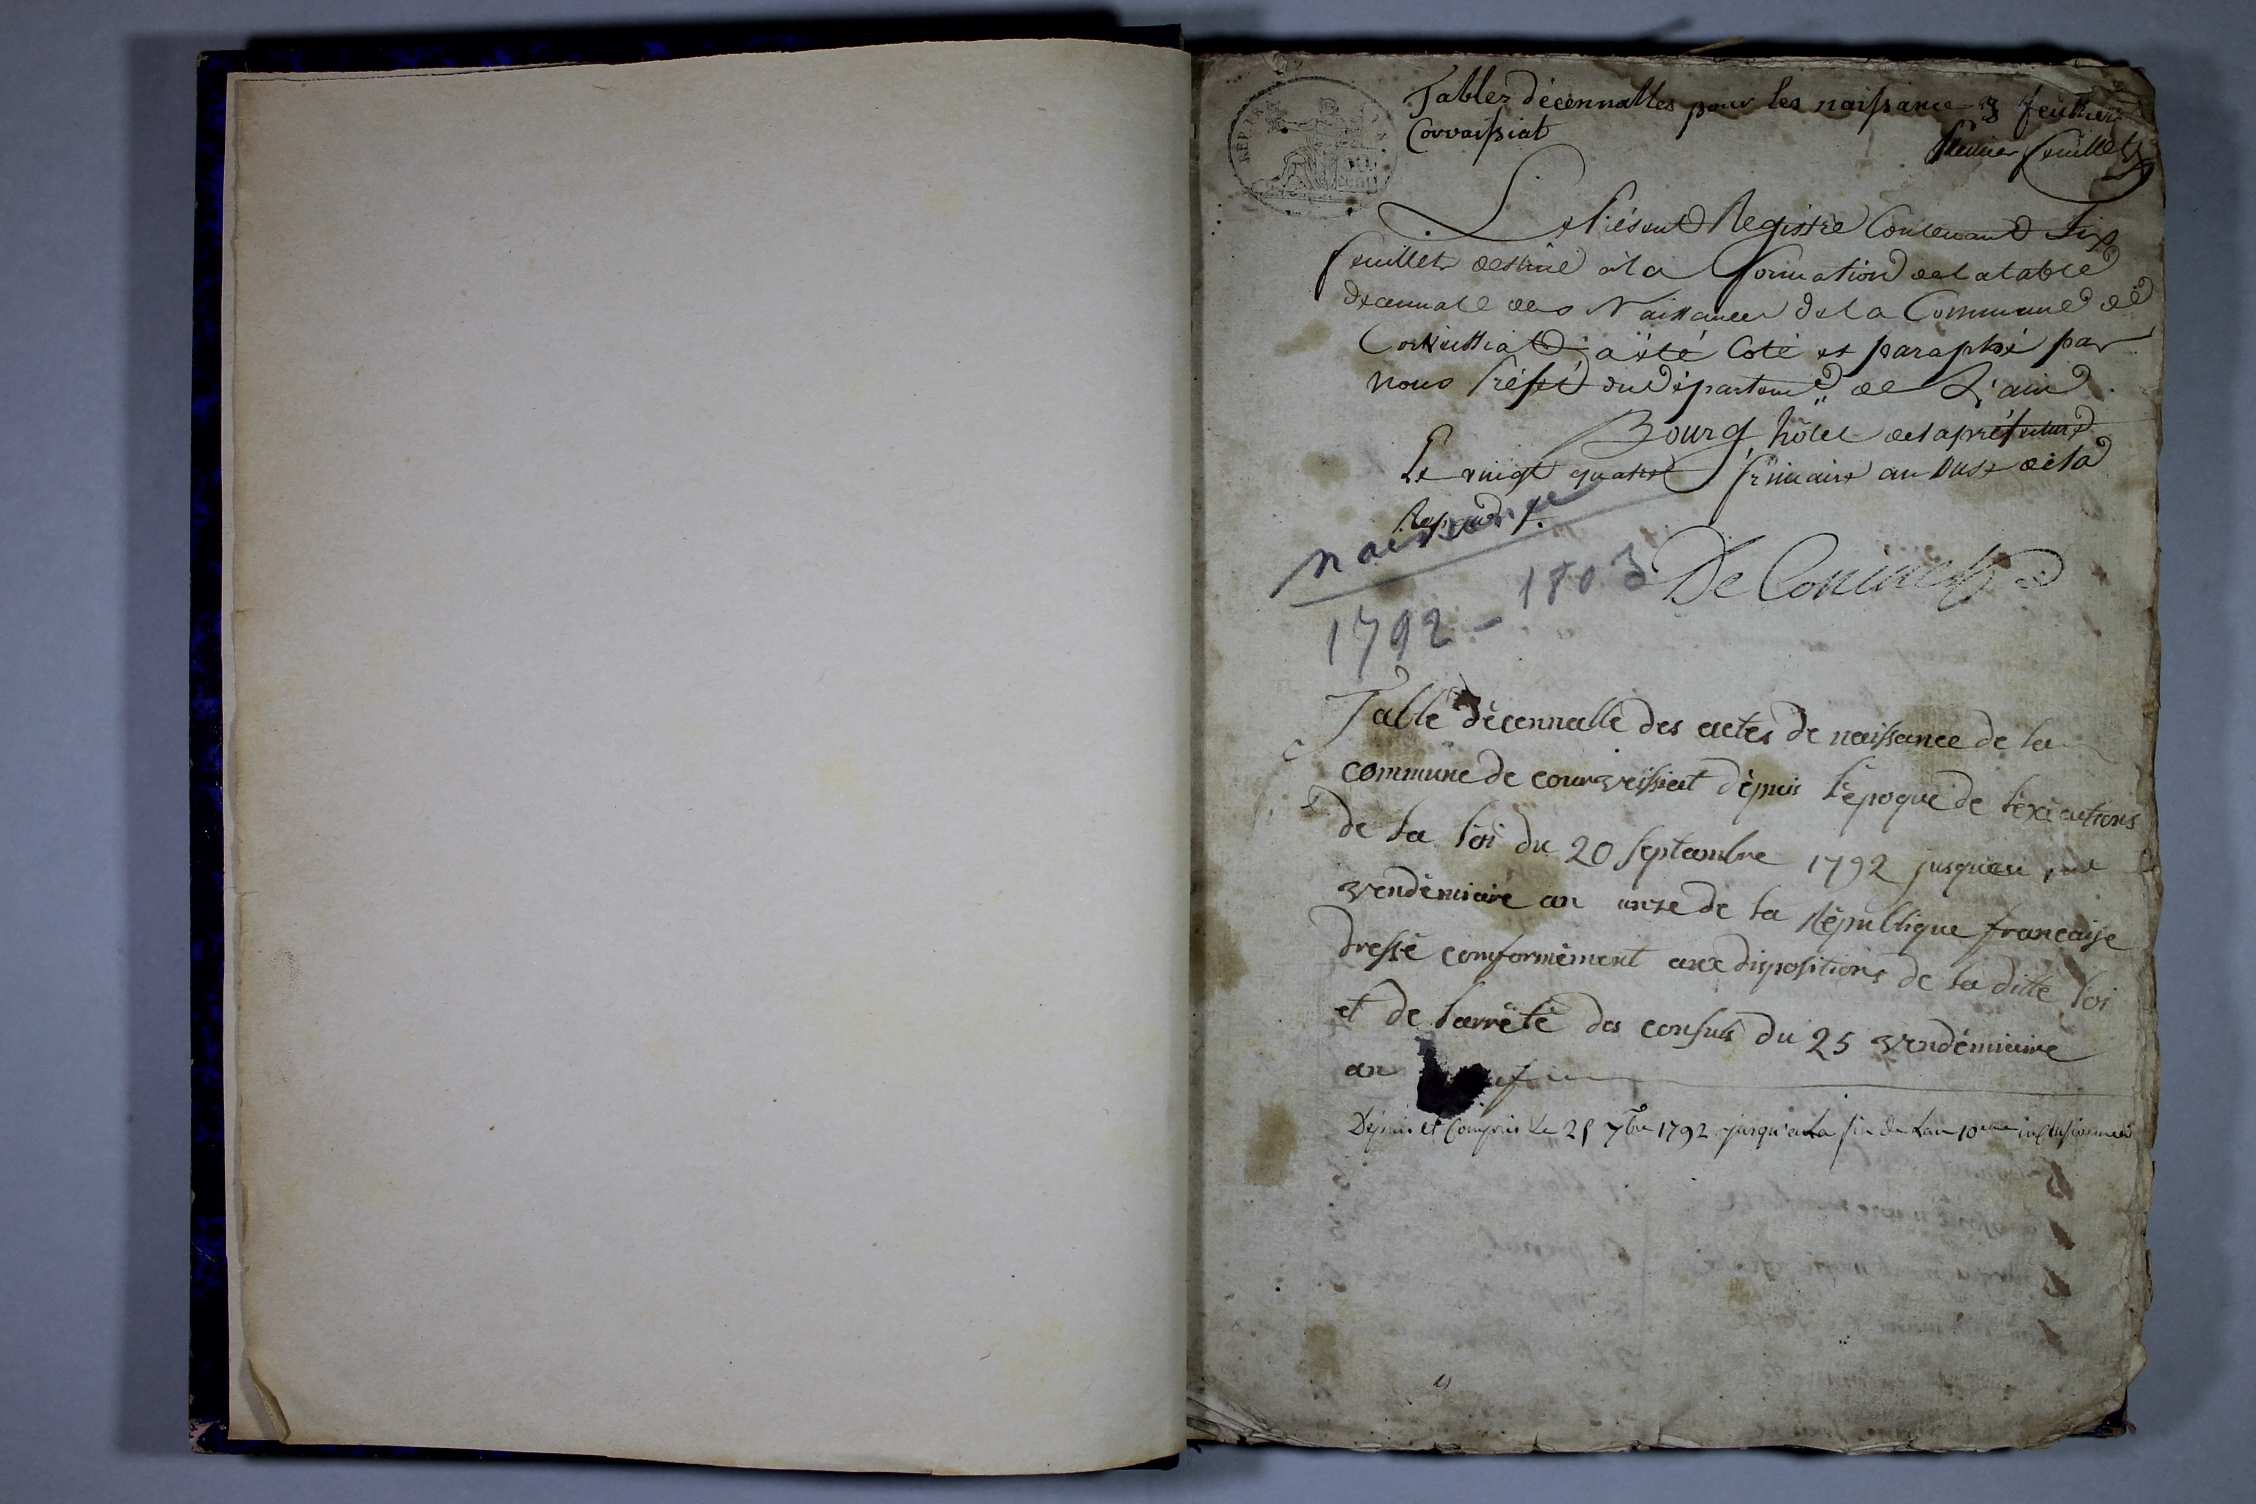 REP. FRA
Tables décennalles pour les naissance 3 feuilles
Corvaissiat
Premier feuillet
Le Présent Registre Contenant Six
feuillets destiné à la formation de la table
decennale des Naissances de la Commune de
Corveissiat, a été Coté et paraphé par
nous Préfet du départemt de L'ain
Bourg, hôtel de la préfecture
Le vingt quatre frimaire an onze de la
naissance
1792 - 1803
De Coninck
Table décennalle des actes de naissance de la
commune de courveissiat dépuis l'époque de l'exécutions
de la loi du 20 septembre 1792 jusqu'au
vendémiaire an onze de la République française
dressé conformément aux dispositions de la ditte loi
et de l'arrêté des consuls du 25 vendémiaire
an
Depuis et Compris Le 21 7bre 1792 jusqu'à la fin de L'an 10eme inclusivement